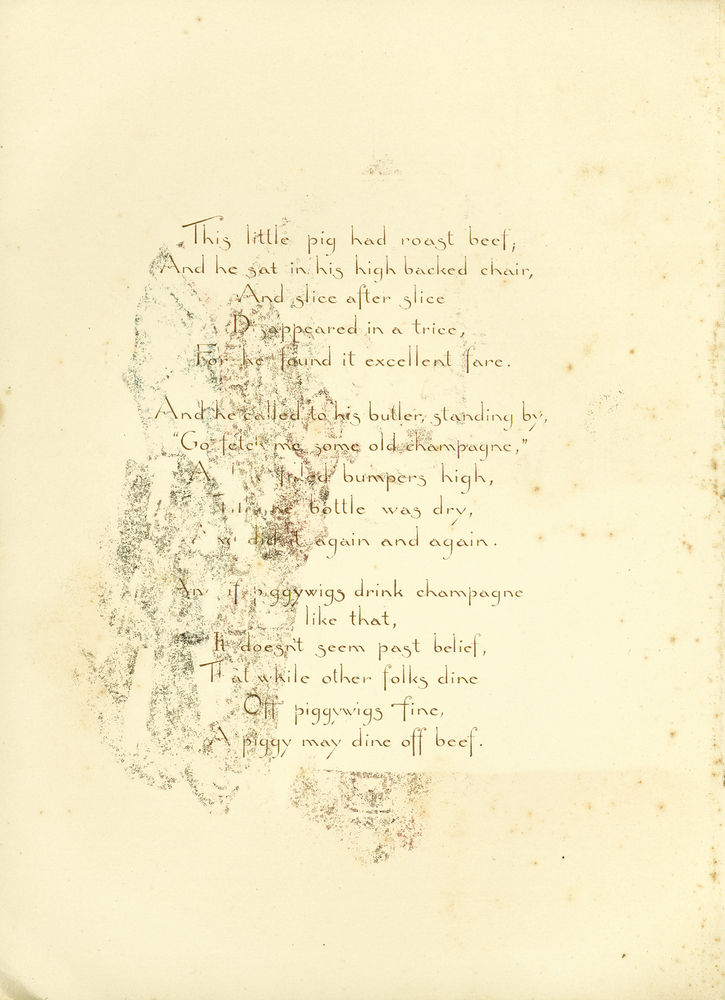 This little pig had roast beef;
And he sat in his high backed chair,
And slice after slice
Disappeared in a trice,
For he found it excellent fare.
And he called to his butler, standing by,
"Go fetch me some old champagne,"
filled bumpers high,
the bottle was dry,
did it again and again.
And if piggywigs drink champagne
like that,
It doesn't seem past belief,
That while other folks dine
Off piggywigs fine,
A piggy may dine off beef.